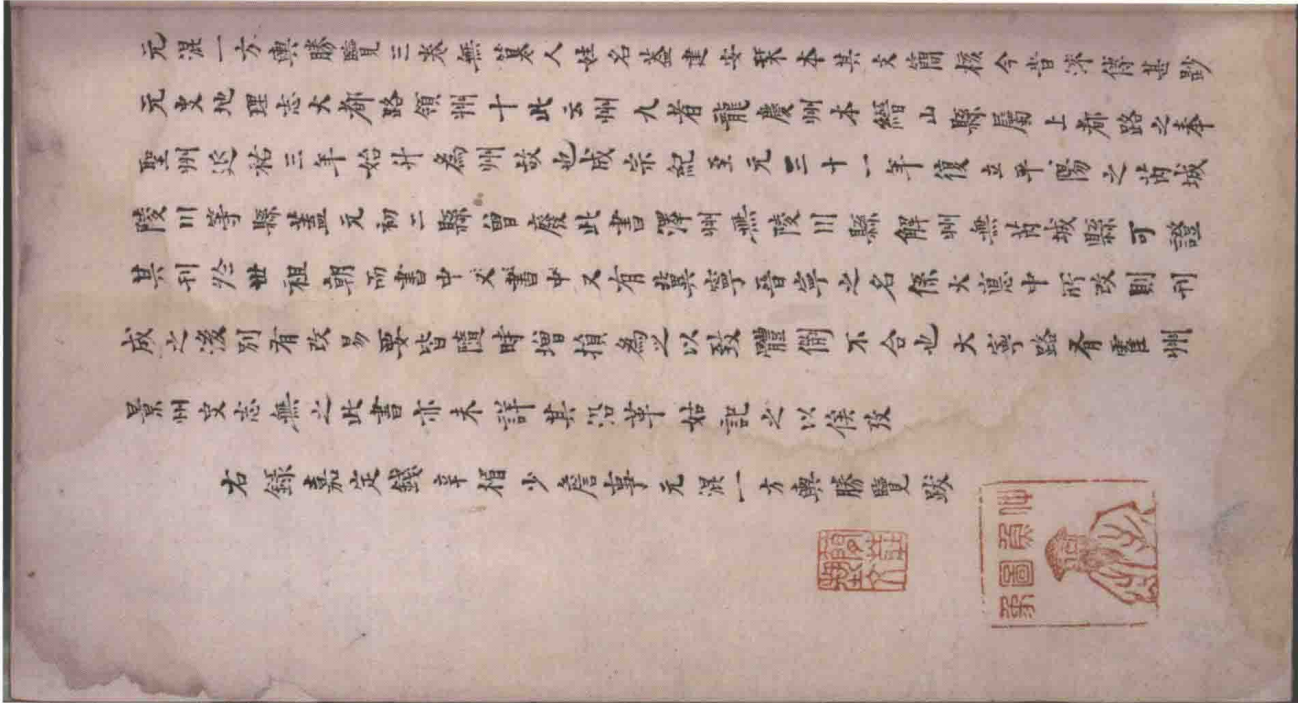 元混一方輿勝覽三卷無篡人姓名葢建安栞本其文簡核今昔流傳甚尠
元史地理志大都路領州十此云州九者龍慶州本縉山縣屬上都路之奉
聖州延祐三年始升為州故也成宗紀至元三十一年復立平陽之芮城
陵川等縣葢元初二縣曾廢此書澤州無陵川縣解州無芮城縣可證
其刊於世祖朝而書中又書中又有冀寧晉寧之名係大惪中所改則刊
成之後別有改易要皆隨時增損為之以致體例不合也大寧路有霍州
景州史志無之此書亦未詳其沿革姑記之以俟攷
右錄嘉定錢辛楣少詹事元混一方輿勝覽跋